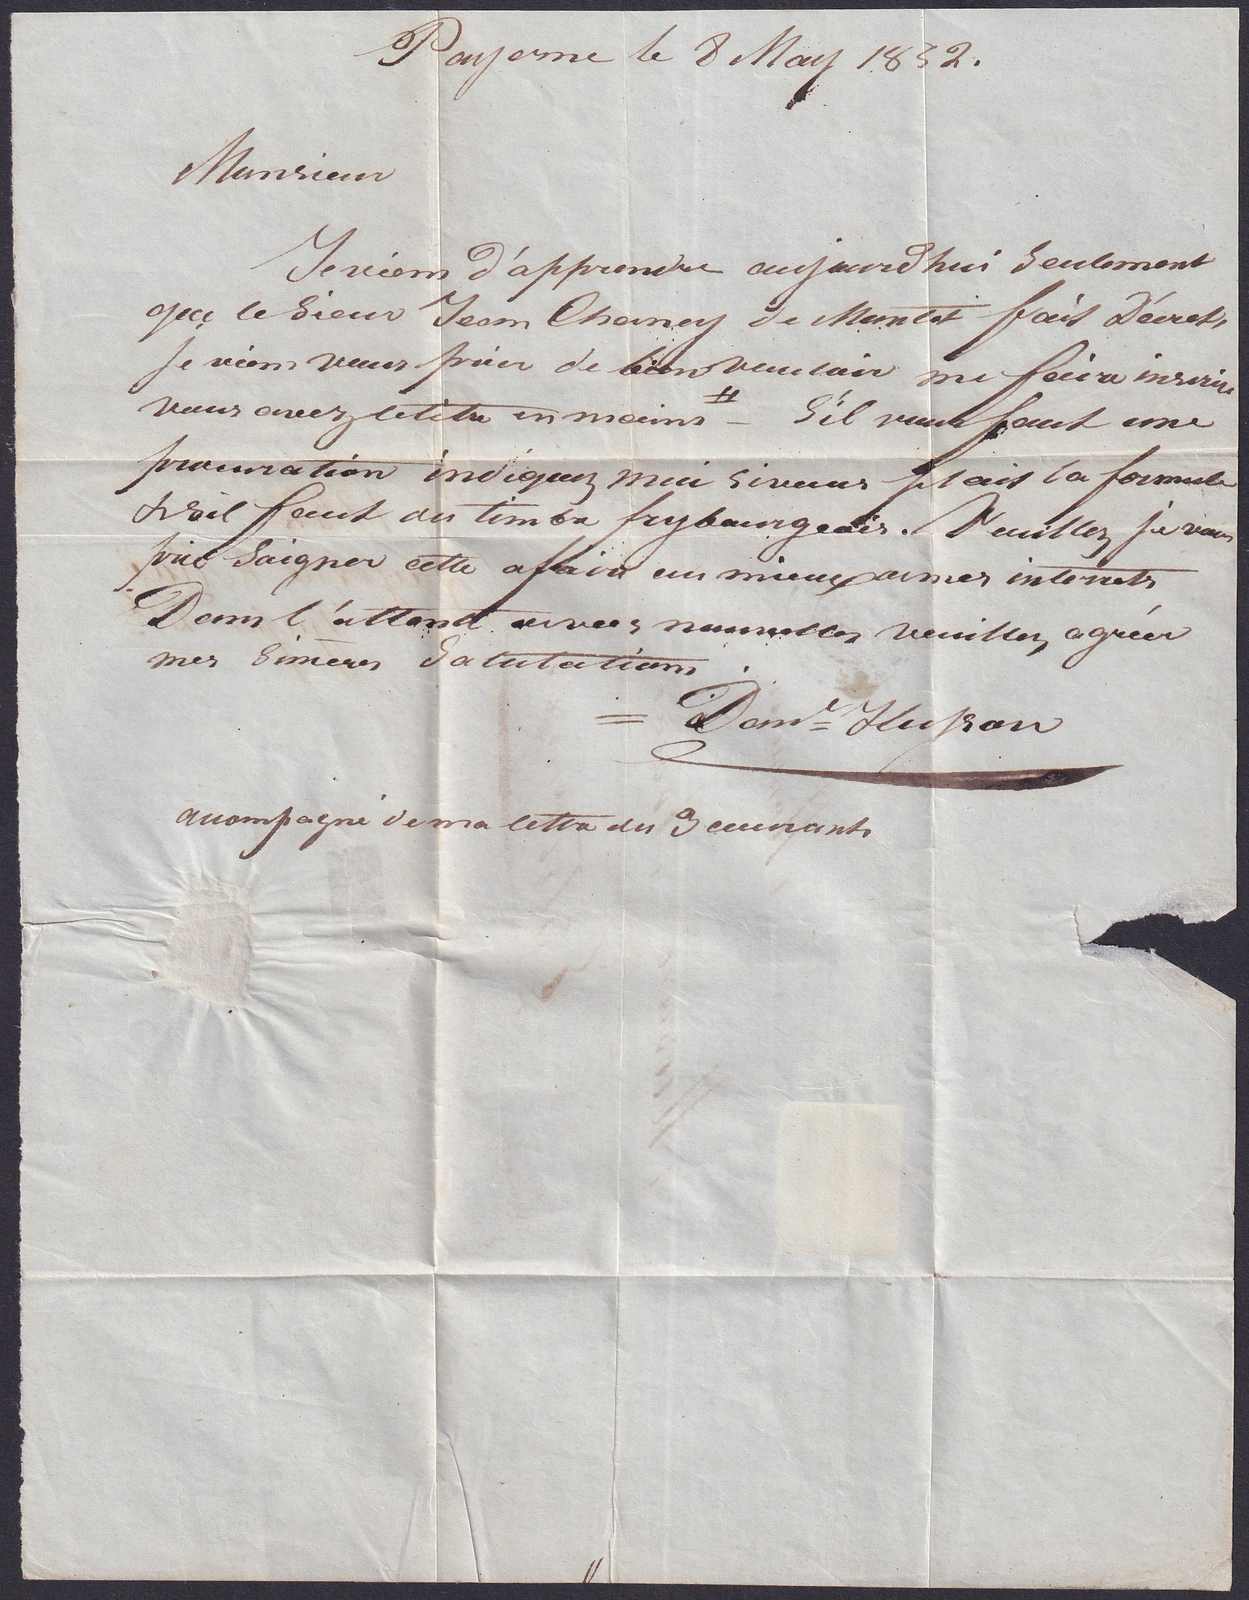 Payerne le 8 May 1852.
Monsieur
Je viens d'apprendre aujourd'hui seulement
que le Sieur Jean Chaney de Montet fait Décret,
je viens vous prier de bien vouloir me faire inscrire
vous avez le titre en mains # – S'il vous faut une
procuration indiquez moi si vous plait la formule
& s'il faut du timbre frybourgeois. Veuillez je vous
prie soigner cette afaire au mieux à mes interrets
Dans l'attent de vos nouvelles veuillez agréer
mes sinceres Salutations
= Danl
acompagné de ma lettre du 3 courant